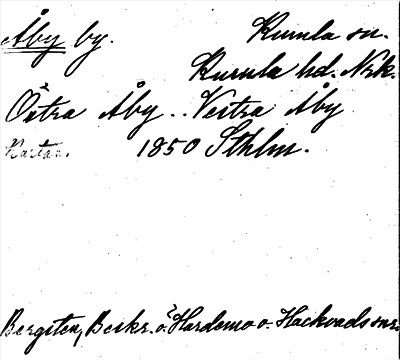 Åby by. Kumla sn.
Kumla hd. Nrk.
Östra Åby.. Vestra Åby
Kartan. 1850 Sthlm.
Bergsten, Beskr. ö. Hardemo o. Hackvads snr.